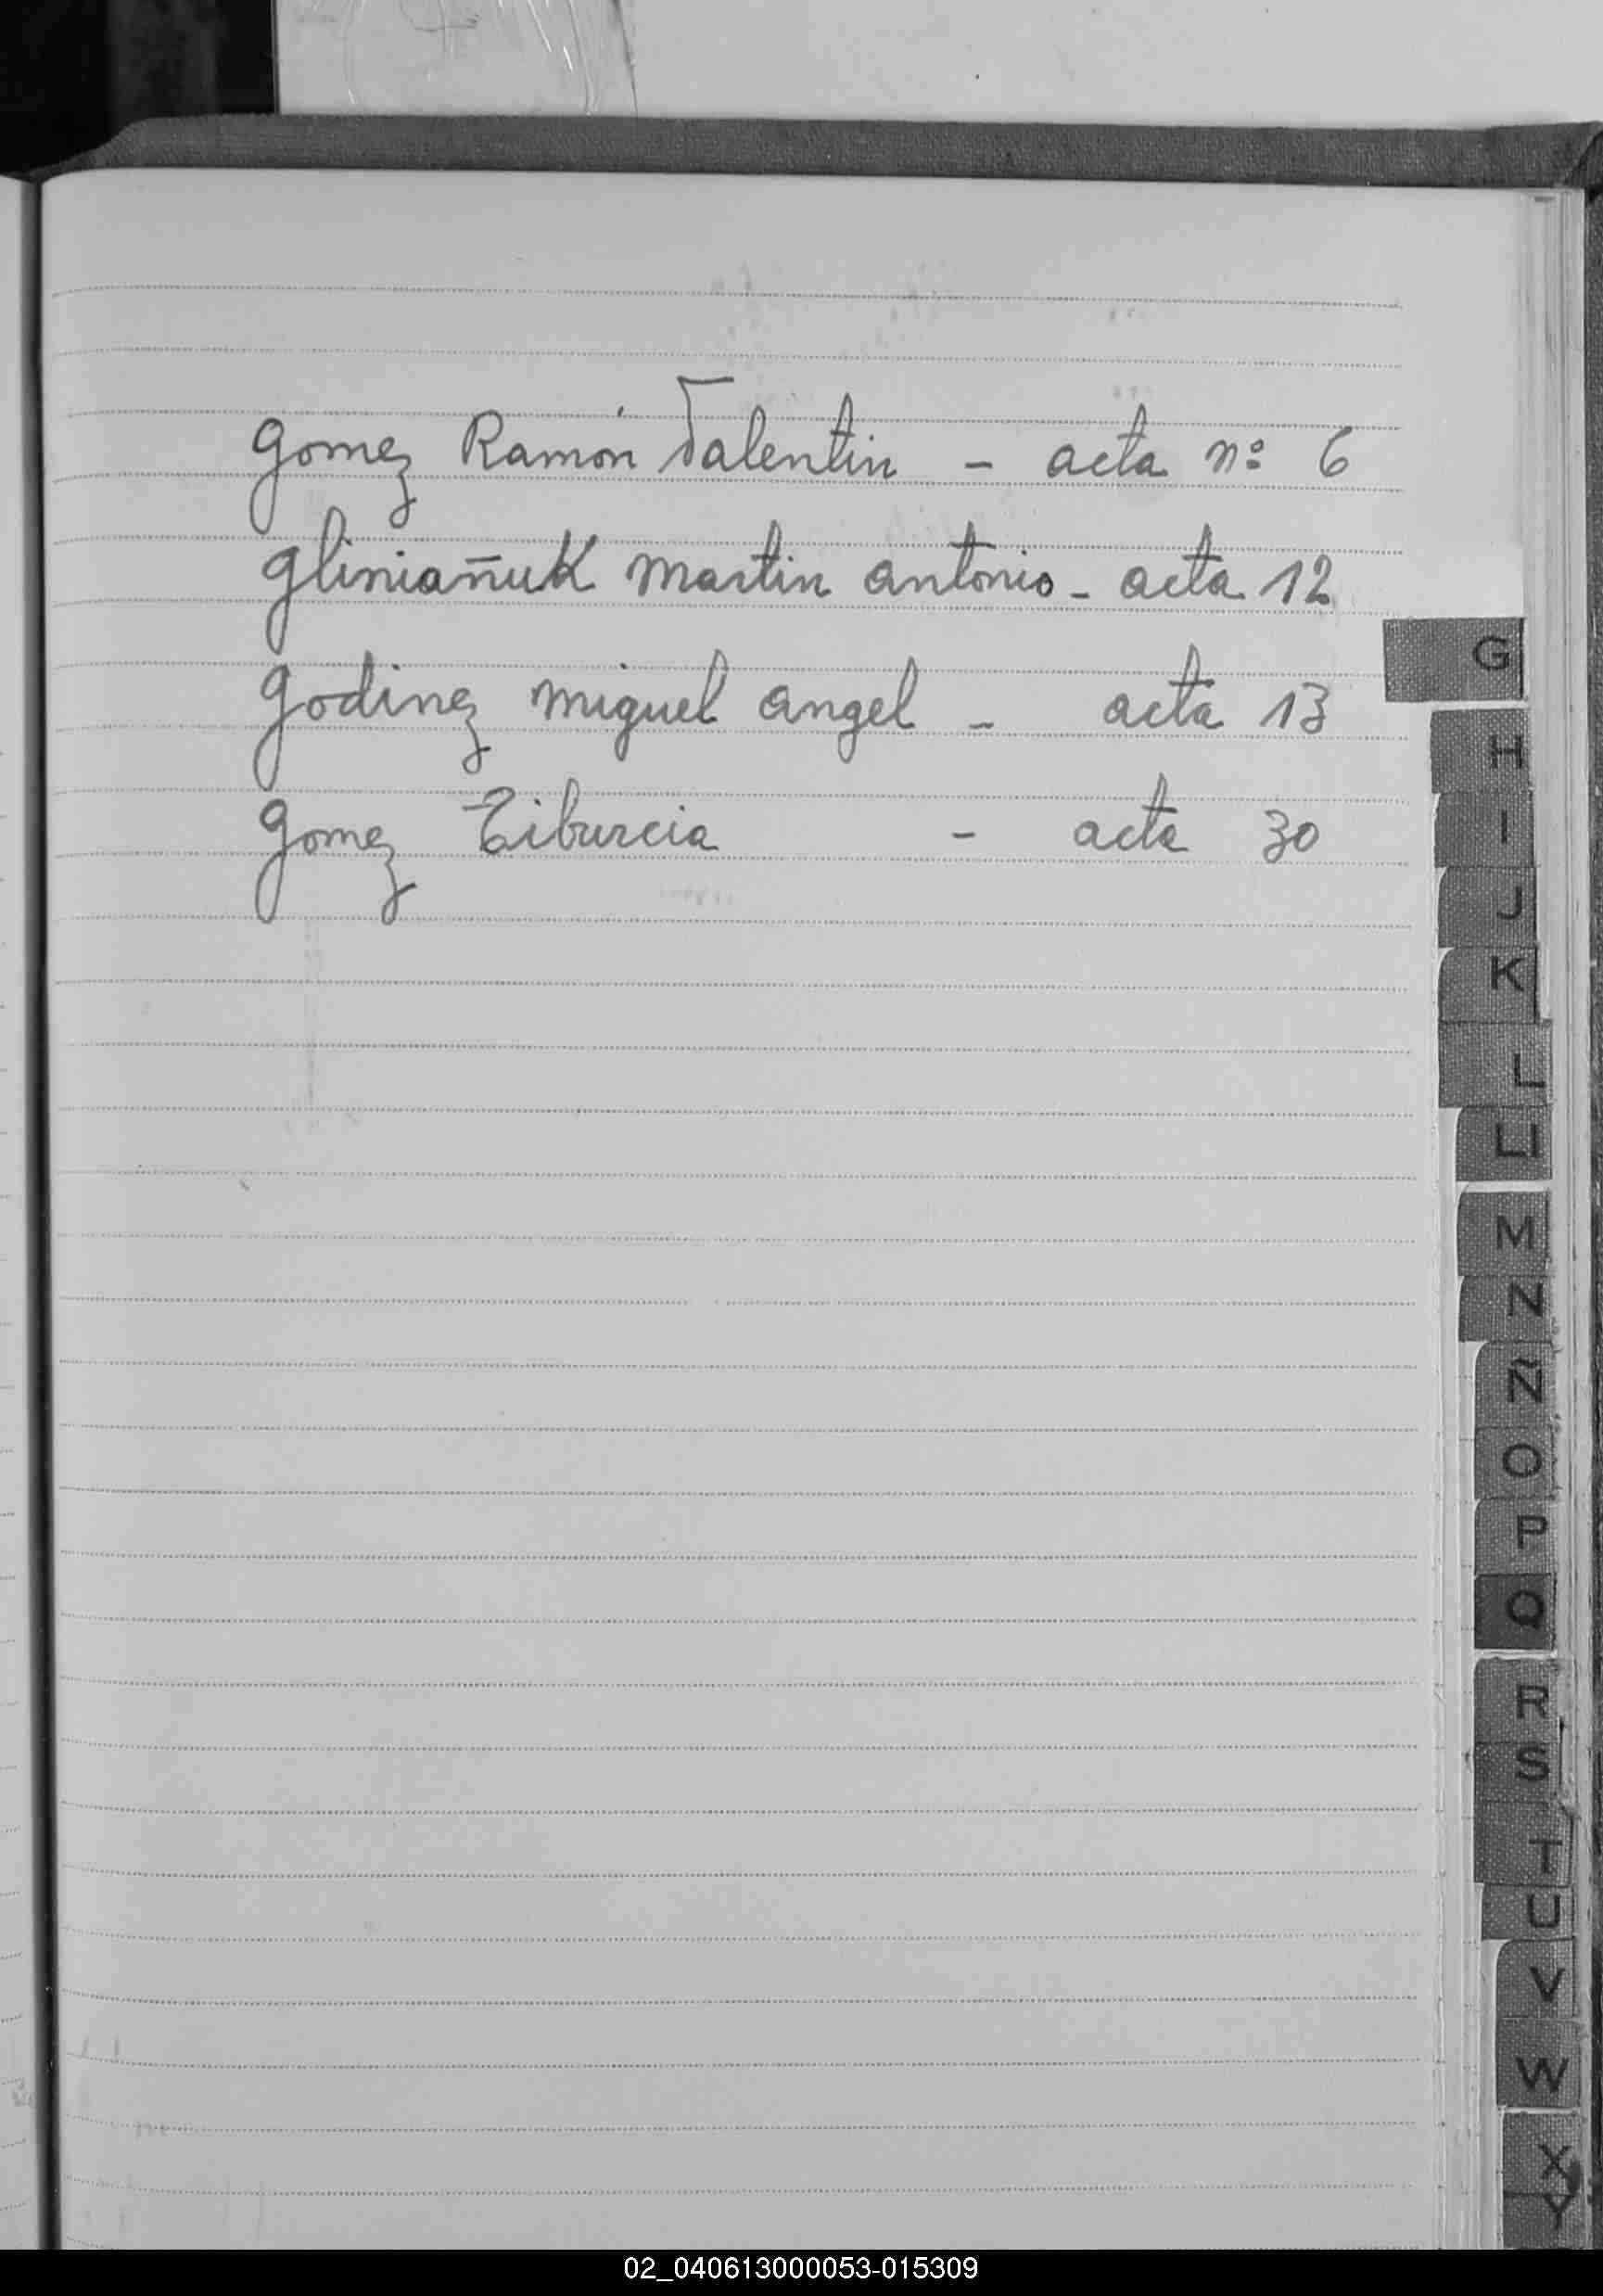 Gomez Ramón Valentin - acta nº 6
Gliniañuk Martin Antonio - acta 12
Godinez Miguel Angel - acta 13
Gomez Tiburcia - acta 30
G
H
I
J
K
L
Ll
M
N
Ñ
O
P
Q
R
S
T
U
V
W
X
Y
02_040613000053-015309